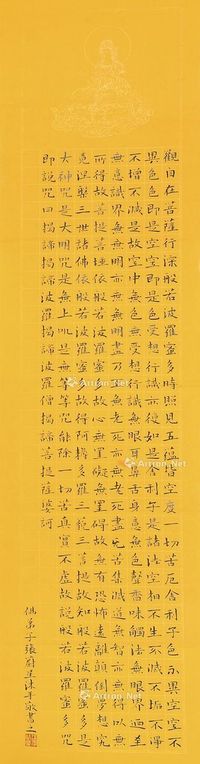 觀自在菩薩行深般若波羅蜜多時照見五蘊皆空度一切苦厄舍利子色不異空空不
異色色即是空空即是色受想行識亦復如是舍利子是諸法空相不生不滅不垢不淨
不增不減是故空中無色無受想行識無眼耳鼻舌身意無色聲香味觸法無眼界乃至
無意識界無無明亦無無明盡乃至無老死亦無老死盡無苦集滅道無智亦無得以無
所得故菩提薩埵依般若波羅蜜多故心無罣礙無罣礙故無有恐怖遠離顛倒夢想究
竟涅槃三世諸佛依般若波羅蜜多故得阿耨多羅三藐三菩提故知般若波羅蜜多是
大神咒是大明咒是無上咒是無等等咒能除一切苦真實不虛故說般若波羅蜜多咒
即說咒曰揭諦揭諦波羅揭諦波羅僧揭諦菩提薩婆訶
佛弟子張沐手敬書
Artron.Net